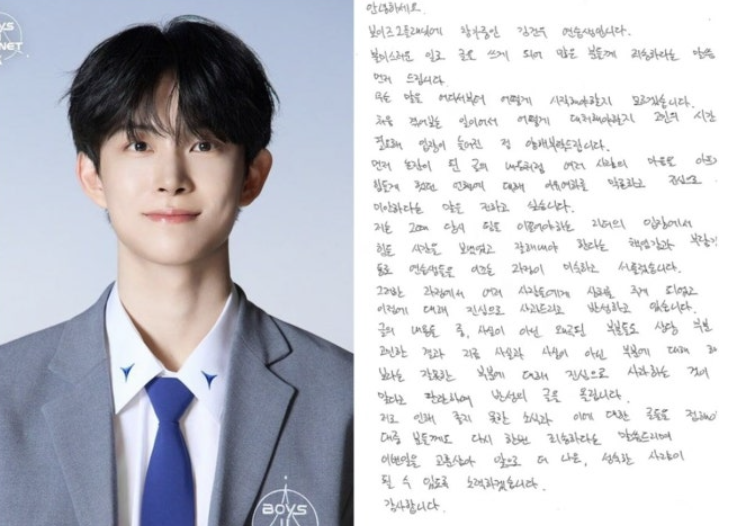 BOYS
PLANET
BOYS
안녕하세요.
보이즈2플래닛에 참가중인 김건우 연습생입니다.
불미스러운 일로 글을 쓰게 되어 많은 분들께 죄송하다는 말씀
먼저 드립니다.
무슨 말을 어디서부터 어떻게 시작해야할지 모르겠습니다.
처음 겪어보는 일이어서 어떻게 대처해야할지 고민의 시간
필요해 입장이 늦어진 점 양해부탁드립니다.
먼저 논란이 된 글의 내용처럼 여러 사람의 마음을 아프
힘들게 했던 언행에 대해 이유여하를 막론하고 진심으로
미안하다는 말을 전하고 싶습니다.
저는 그때 당시 팀을 이끌어야하는 리더의 입장에서
힘든 시간을 보냈었고 잘해내야 한다는 책임감과 부담감
동료 연습생들을 이끄는 과정이 미숙하고 서툴렀습니다.
그러한 과정에서 여러 사람들에게 상처를 주게 되었고
이점에 대해 진심으로 사과드리고 반성하고 있습니다.
글의 내용들 중, 사실이 아닌 왜곡된 부분들도 상당 부분
고민한 결과 지금 사실과 사실이 아닌 부분에 대해
보다는 잘못한 부분에 대해 진심으로 사과하는 것이
맞다고 판단하여 반성의 글을 올립니다.
저로 인해 좋지 못한 소식과 이에 대한 글들을 접해
대중 분들께도 다시 한번 죄송하다는 말씀드리며
이번일을 교훈삼아 앞으로 더 나은, 성숙한 사람이
될 수 있도록 노력하겠습니다.
감사합니다.